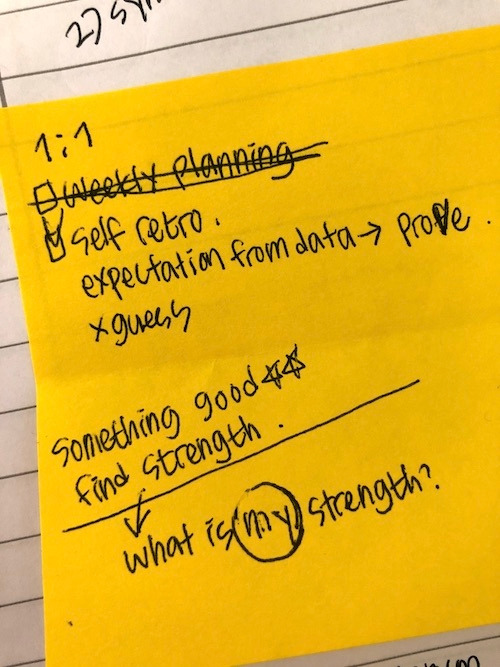 2) syn
1:1
weekly planning
self retro.
expectation from data → prove.
x guess
something good ☆☆
find strength.
what is my strength?